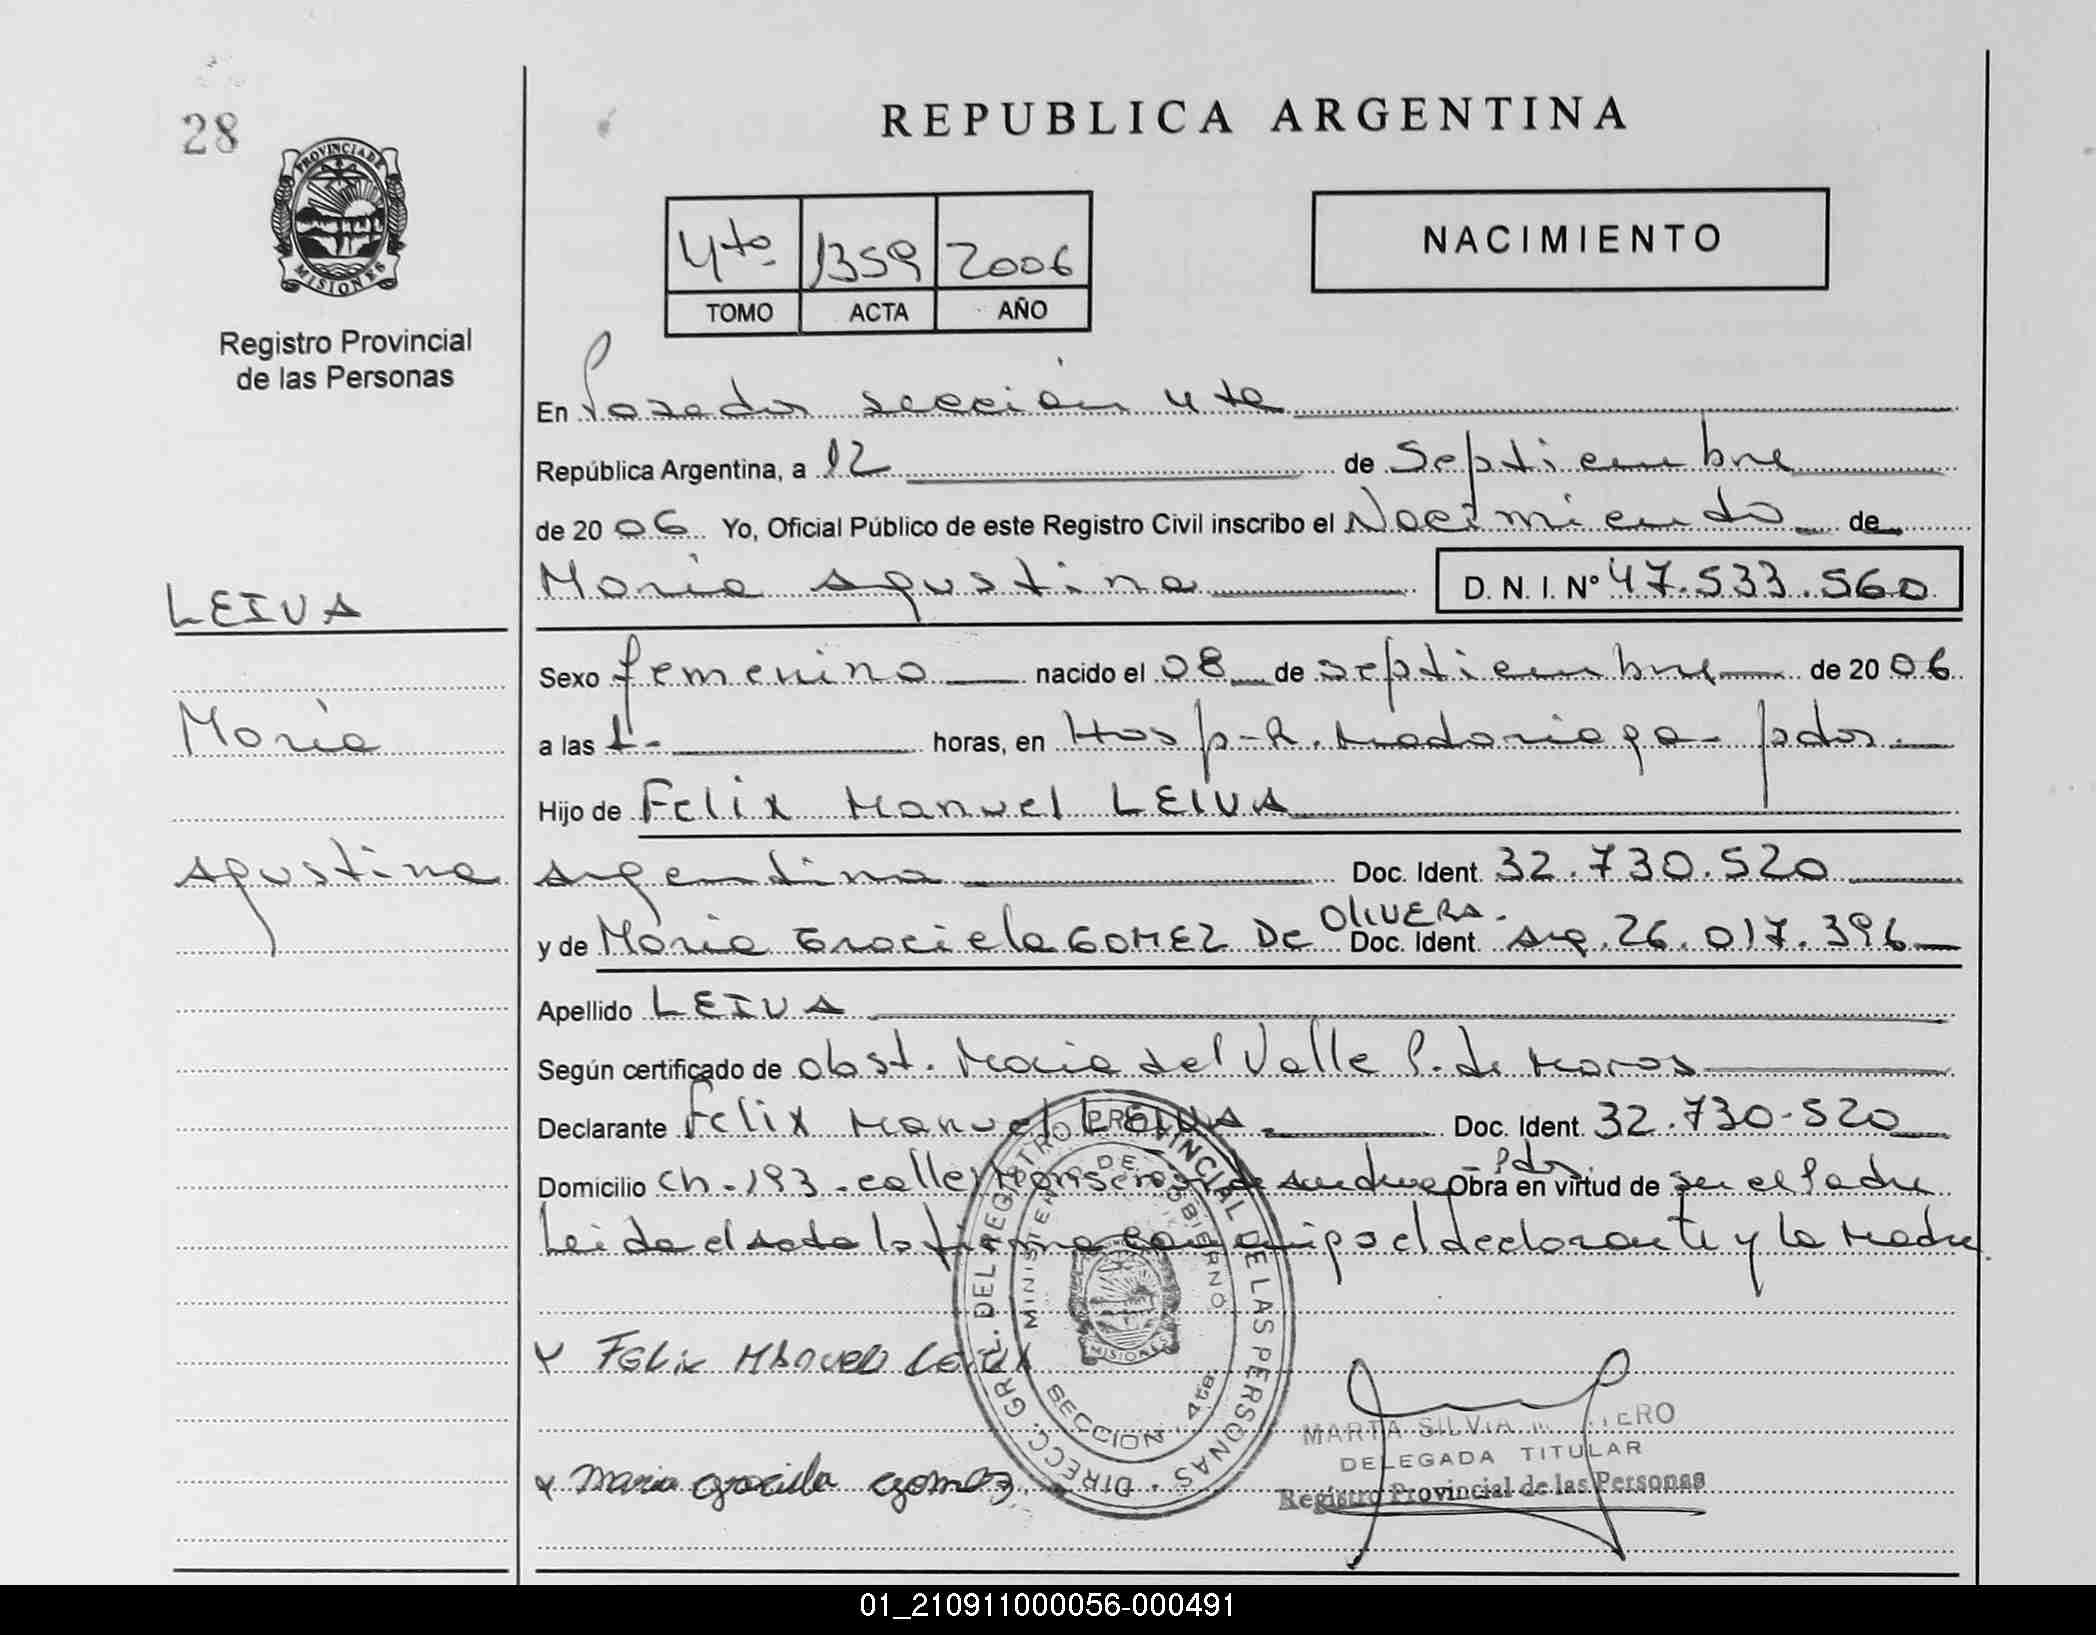 28
PROVINCIA DE
MISIONES
Registro Provincial
de las Personas
REPUBLICA ARGENTINA
4to 1359 2006
TOMO ACTA AÑO
NACIMIENTO
En Posadas sección 4ta
República Argentina, a 12 de Septiembre
de 2006 Yo, Oficial Público de este Registro Civil inscribo el Nacimiento de
María Agustina D. N. I. Nº 47.533.560
LEIVA
María
Agustina
Sexo femenino nacido el 08 de septiembre de 2006
a las 1- horas, en Hosp-R. Madariaga- pdas.
Hijo de Felix Manuel LEIVA
Argentina Doc. Ident. 32.730.520
y de María Graciela GOMEZ DE OLIVERA. Doc. Ident. Arg. 26.017.396
Apellido LEIVA
Según certificado de obst. Maria del Valle P. de Maros
Declarante Felix Manuel LEIVA. Doc. Ident. 32.730-520
Domicilio ch-193-calle Monseñor de Andrea Pdas Obra en virtud de ser el Padre
Leida el acta la firma conmigo el declarante y la Madre.
x Felix Manuel Leiva
x Maria graciela gomez
DIRECC. GRL. DEL REGISTRO PROVINCIAL DE LAS PERSONAS
MINISTERIO DE GOBIERNO
MISIONES
SECCION 4ta.
MARTA SILVIA
DELEGADA TITULAR
Registro Provincial de las Personas
01_210911000056-000491